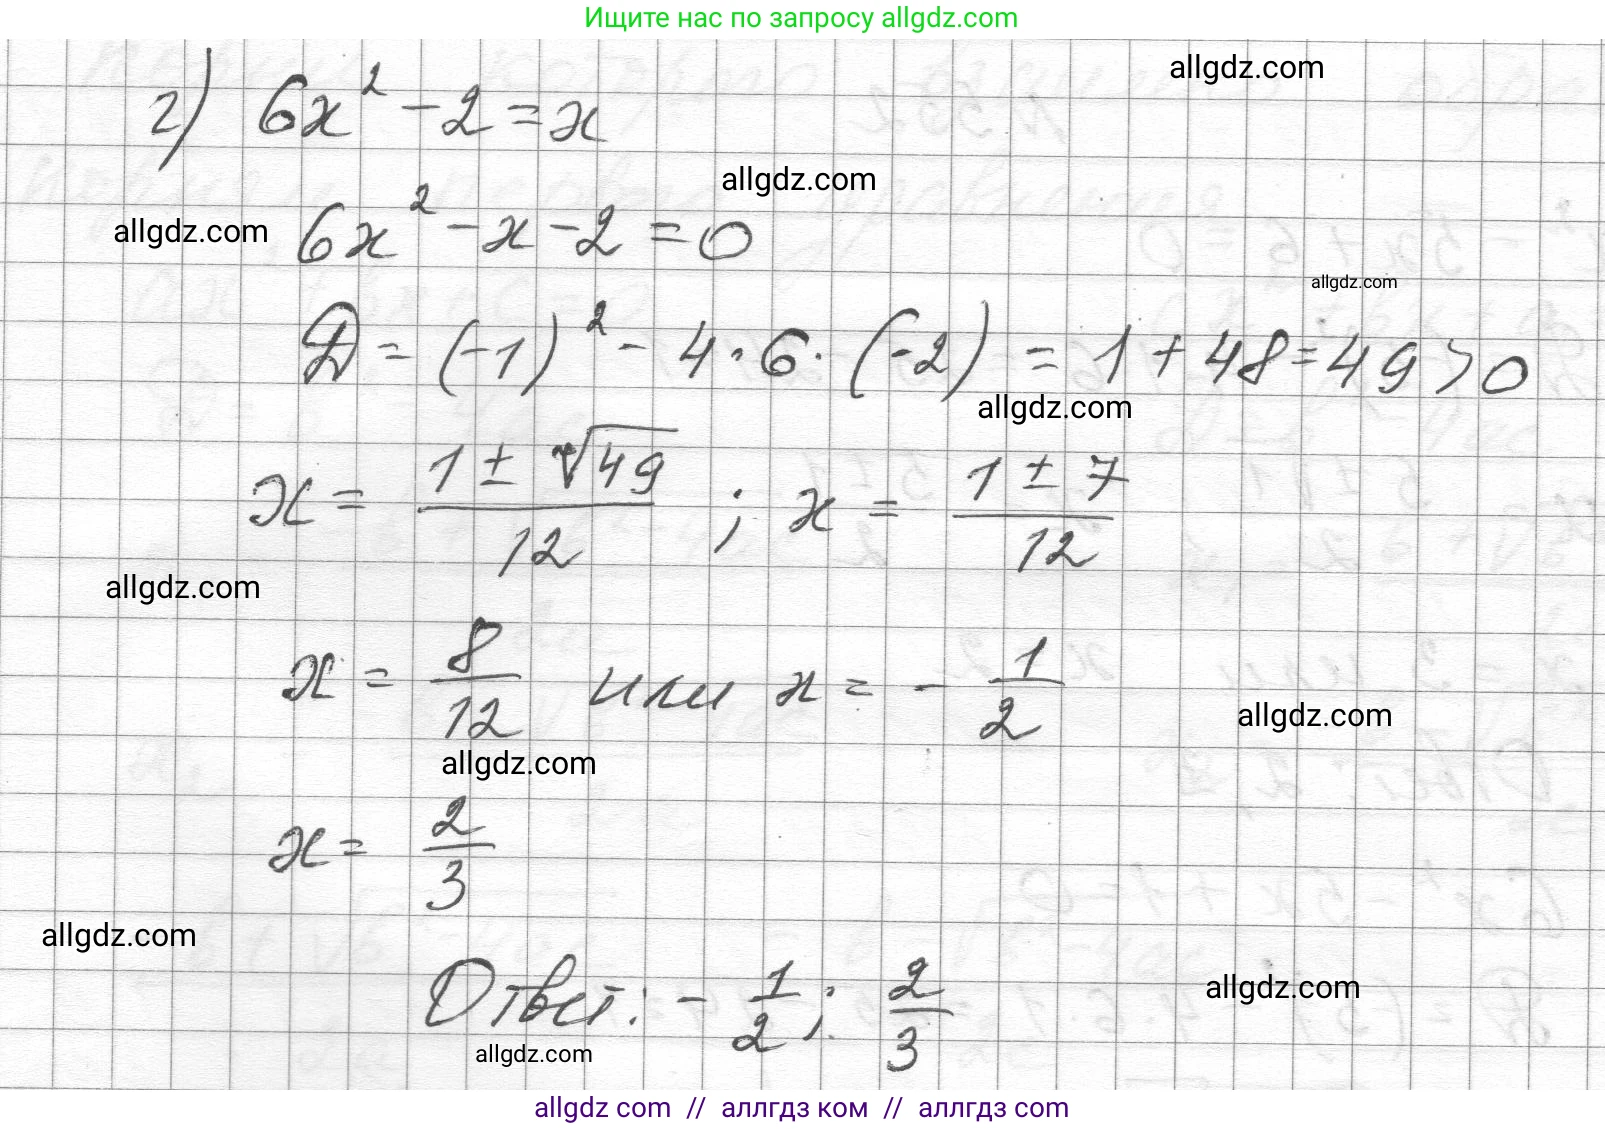 Ищите нас по запросу allgdz.com
allgdz.com
г) 6x² - 2 = x
allgdz.com
allgdz.com
6x² - x - 2 = 0
allgdz.com
D = (-1)² - 4·6·(-2) = 1 + 48 = 49 > 0
allgdz.com
x = (1 ± √49)/12 ; x = (1 ± 7)/12
allgdz.com
x = 8/12 или x = - 1/2
allgdz.com
allgdz.com
x = 2/3
allgdz.com
Ответ: - 1/2 ; 2/3
allgdz.com
allgdz.com
allgdz com // аллгдз ком // аллгдз com